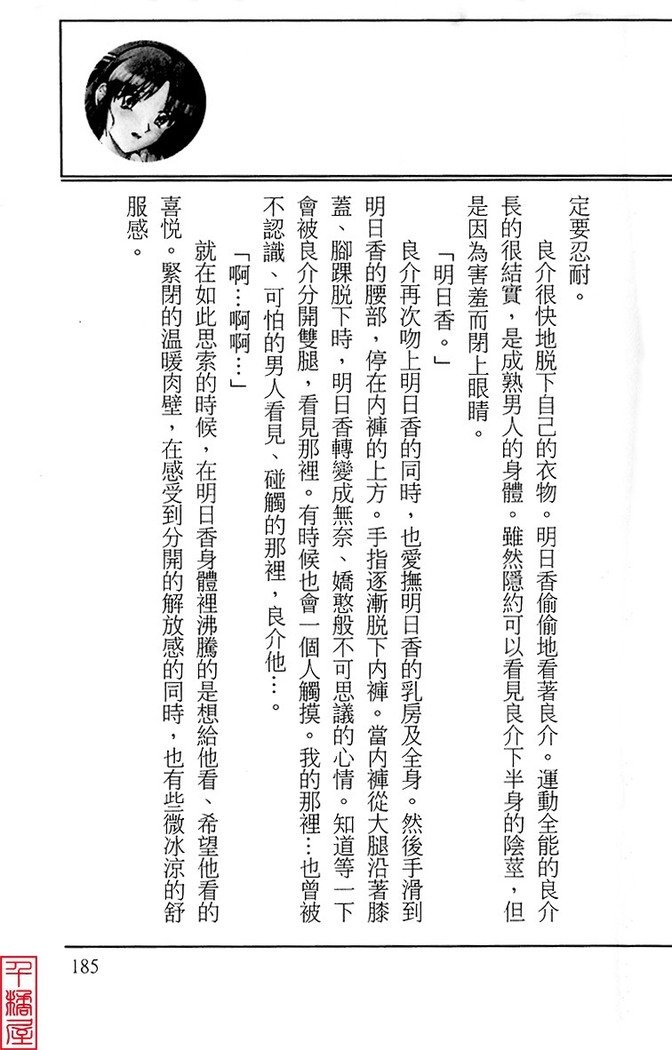 定要忍耐。
良介很快地脫下自己的衣物。明日香偷偷地看著良介。運動全能的良介
長的很結實，是成熟男人的身體。雖然隱約可以看見良介下半身的陰莖，但
是因為害羞而閉上眼睛。
「明日香。」
良介再次吻上明日香的同時，也愛撫明日香的乳房及全身。然後手滑到
明日香的腰部，停在內褲的上方。手指逐漸脫下內褲。當內褲從大腿沿著膝
蓋、腳踝脫下時，明日香轉變成無奈、嬌憨般不可思議的心情。知道等一下
會被良介分開雙腿，看見那裡。有時候也會一個人觸摸。我的那裡…也曾被
不認識、可怕的男人看見、碰觸的那裡，良介他…。
「啊…啊啊…」
就在如此思索的時候，在明日香身體裡沸騰的是想給他看、希望他看的
喜悅。緊閉的溫暖肉壁，在感受到分開的解放感的同時，也有些微冰涼的舒
服感。
185
千橘屋